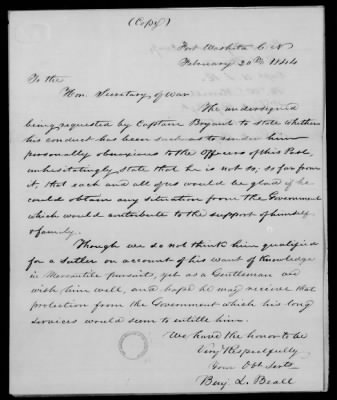 (Copy)
Fort Washita C. N.
February 20th 1844
To the
Hon. Secretary of War
The undersigned
being requested by Captain Bryant to state whether
his conduct has been such as to render him
personally obnoxious to the Officers of this Post,
unhesitatingly state that he is not so; so far from
it, that each and all of us would be glad if he
could obtain any situation from the Government
which would contribute to the support of himself
& family.
Though we do not think him qualified
for a Sutler on account of his want of Knowledge
in Mercantile pursuits, yet as a Gentleman we
wish him well, and hope he may receive that
protection from the Government which his long
services would seem to entitle him.
We have the honor to be
Very Respectfully
Your Obt Servts
Benj. L. Beall